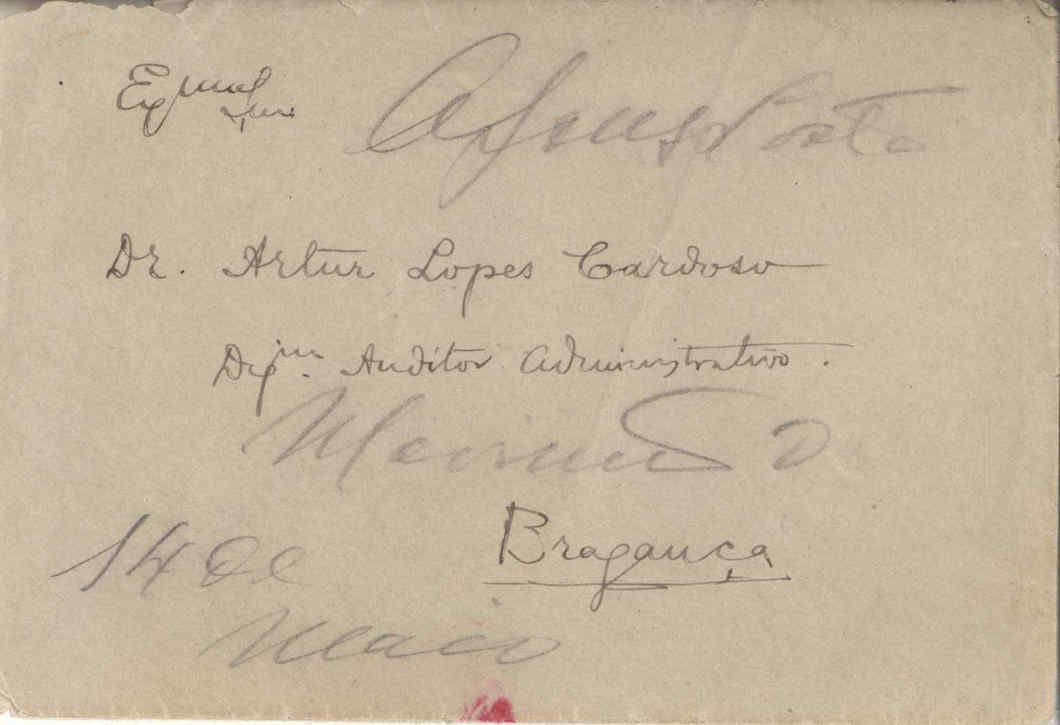 Exmo Snr Afonso Costa
Dr. Artur Lopes Cardoso
Digmo. Auditor Administrativo.
Movimento D
14 de Bragança
Maio